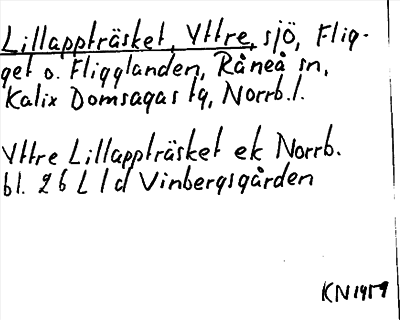 Lillappträsket, Yttre, sjö, Flig-
get o. Fligglanden, Råneå sn,
Kalix Domsagas tg, Norrb.l.
Yttre Lillappträsket ek Norrb.
bl. 26 L 1 d Vinbergsgården